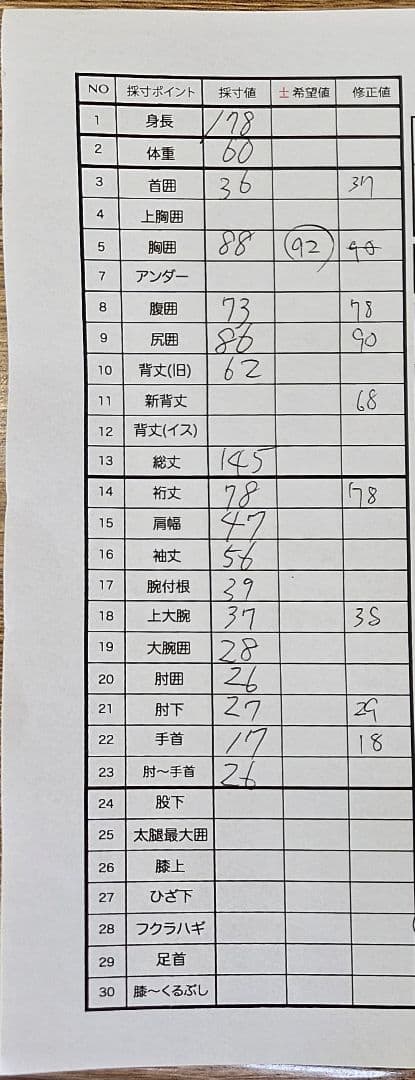 NO 採寸ポイント 採寸値 ±希望値 修正値
1 身長 178
2 体重 60
3 首囲 36 37
4 上胸囲
5 胸囲 88 92 90
7 アンダー
8 腹囲 73 78
9 尻囲 86 90
10 背丈(旧) 62
11 新背丈 68
12 背丈(イス)
13 総丈 145
14 裄丈 78 78
15 肩幅 47
16 袖丈 56
17 腕付根 39
18 上大腕 37 38
19 大腕囲 28
20 肘囲 26
21 肘下 27 29
22 手首 17 18
23 肘〜手首 26
24 股下
25 太腿最大囲
26 膝上
27 ひざ下
28 フクラハギ
29 足首
30 膝〜くるぶし